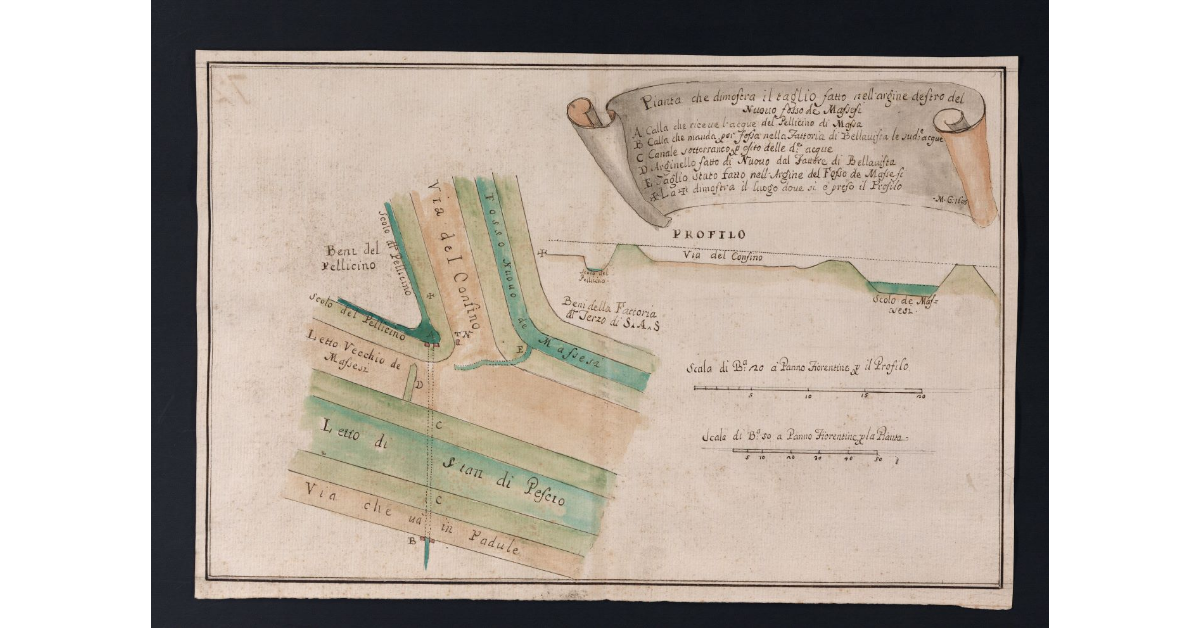 Pianta che dimostra il taglio fatto nell'argine destro del
Nuouo fosso de Massesi
A. Calla che riceue l'acque del Pellicino di Massa
B Calla che manda p̱ fossa nella Fattoria di Bellauista le sud.e acque
C Canale sotterraneo p̱ esito delle d.e acque
D. Arginello fatto di Nuouo dal Fattre di Bellauista
E. Taglio stato fatto nell'Argine del Fosso de Massesi
dimostra il luogo doue si è preso il Profilo
PROFILO
Via del Confino
Scolo del
Pellicino
Scolo de Mas=
sesi
Via del Confino
Fosso Nuouo de Massesi
Scolo del Pellicino
Beni del
Pellicino
Scolo del Pellicino
Beni della Fattoria
del Terzo di S.A.S
Letto Vecchio de
Massesi
A
E
D
C
Letto di Stan di Pescio
C
Via che ua in Padule
B
Scala di B.a 20 a Panno Fiorentine p̱ il Profilo
5 10 15 20
Scala di B.a 50 a Panno Fiorentine p̱ la Pianta
5 10 20 30 40 50